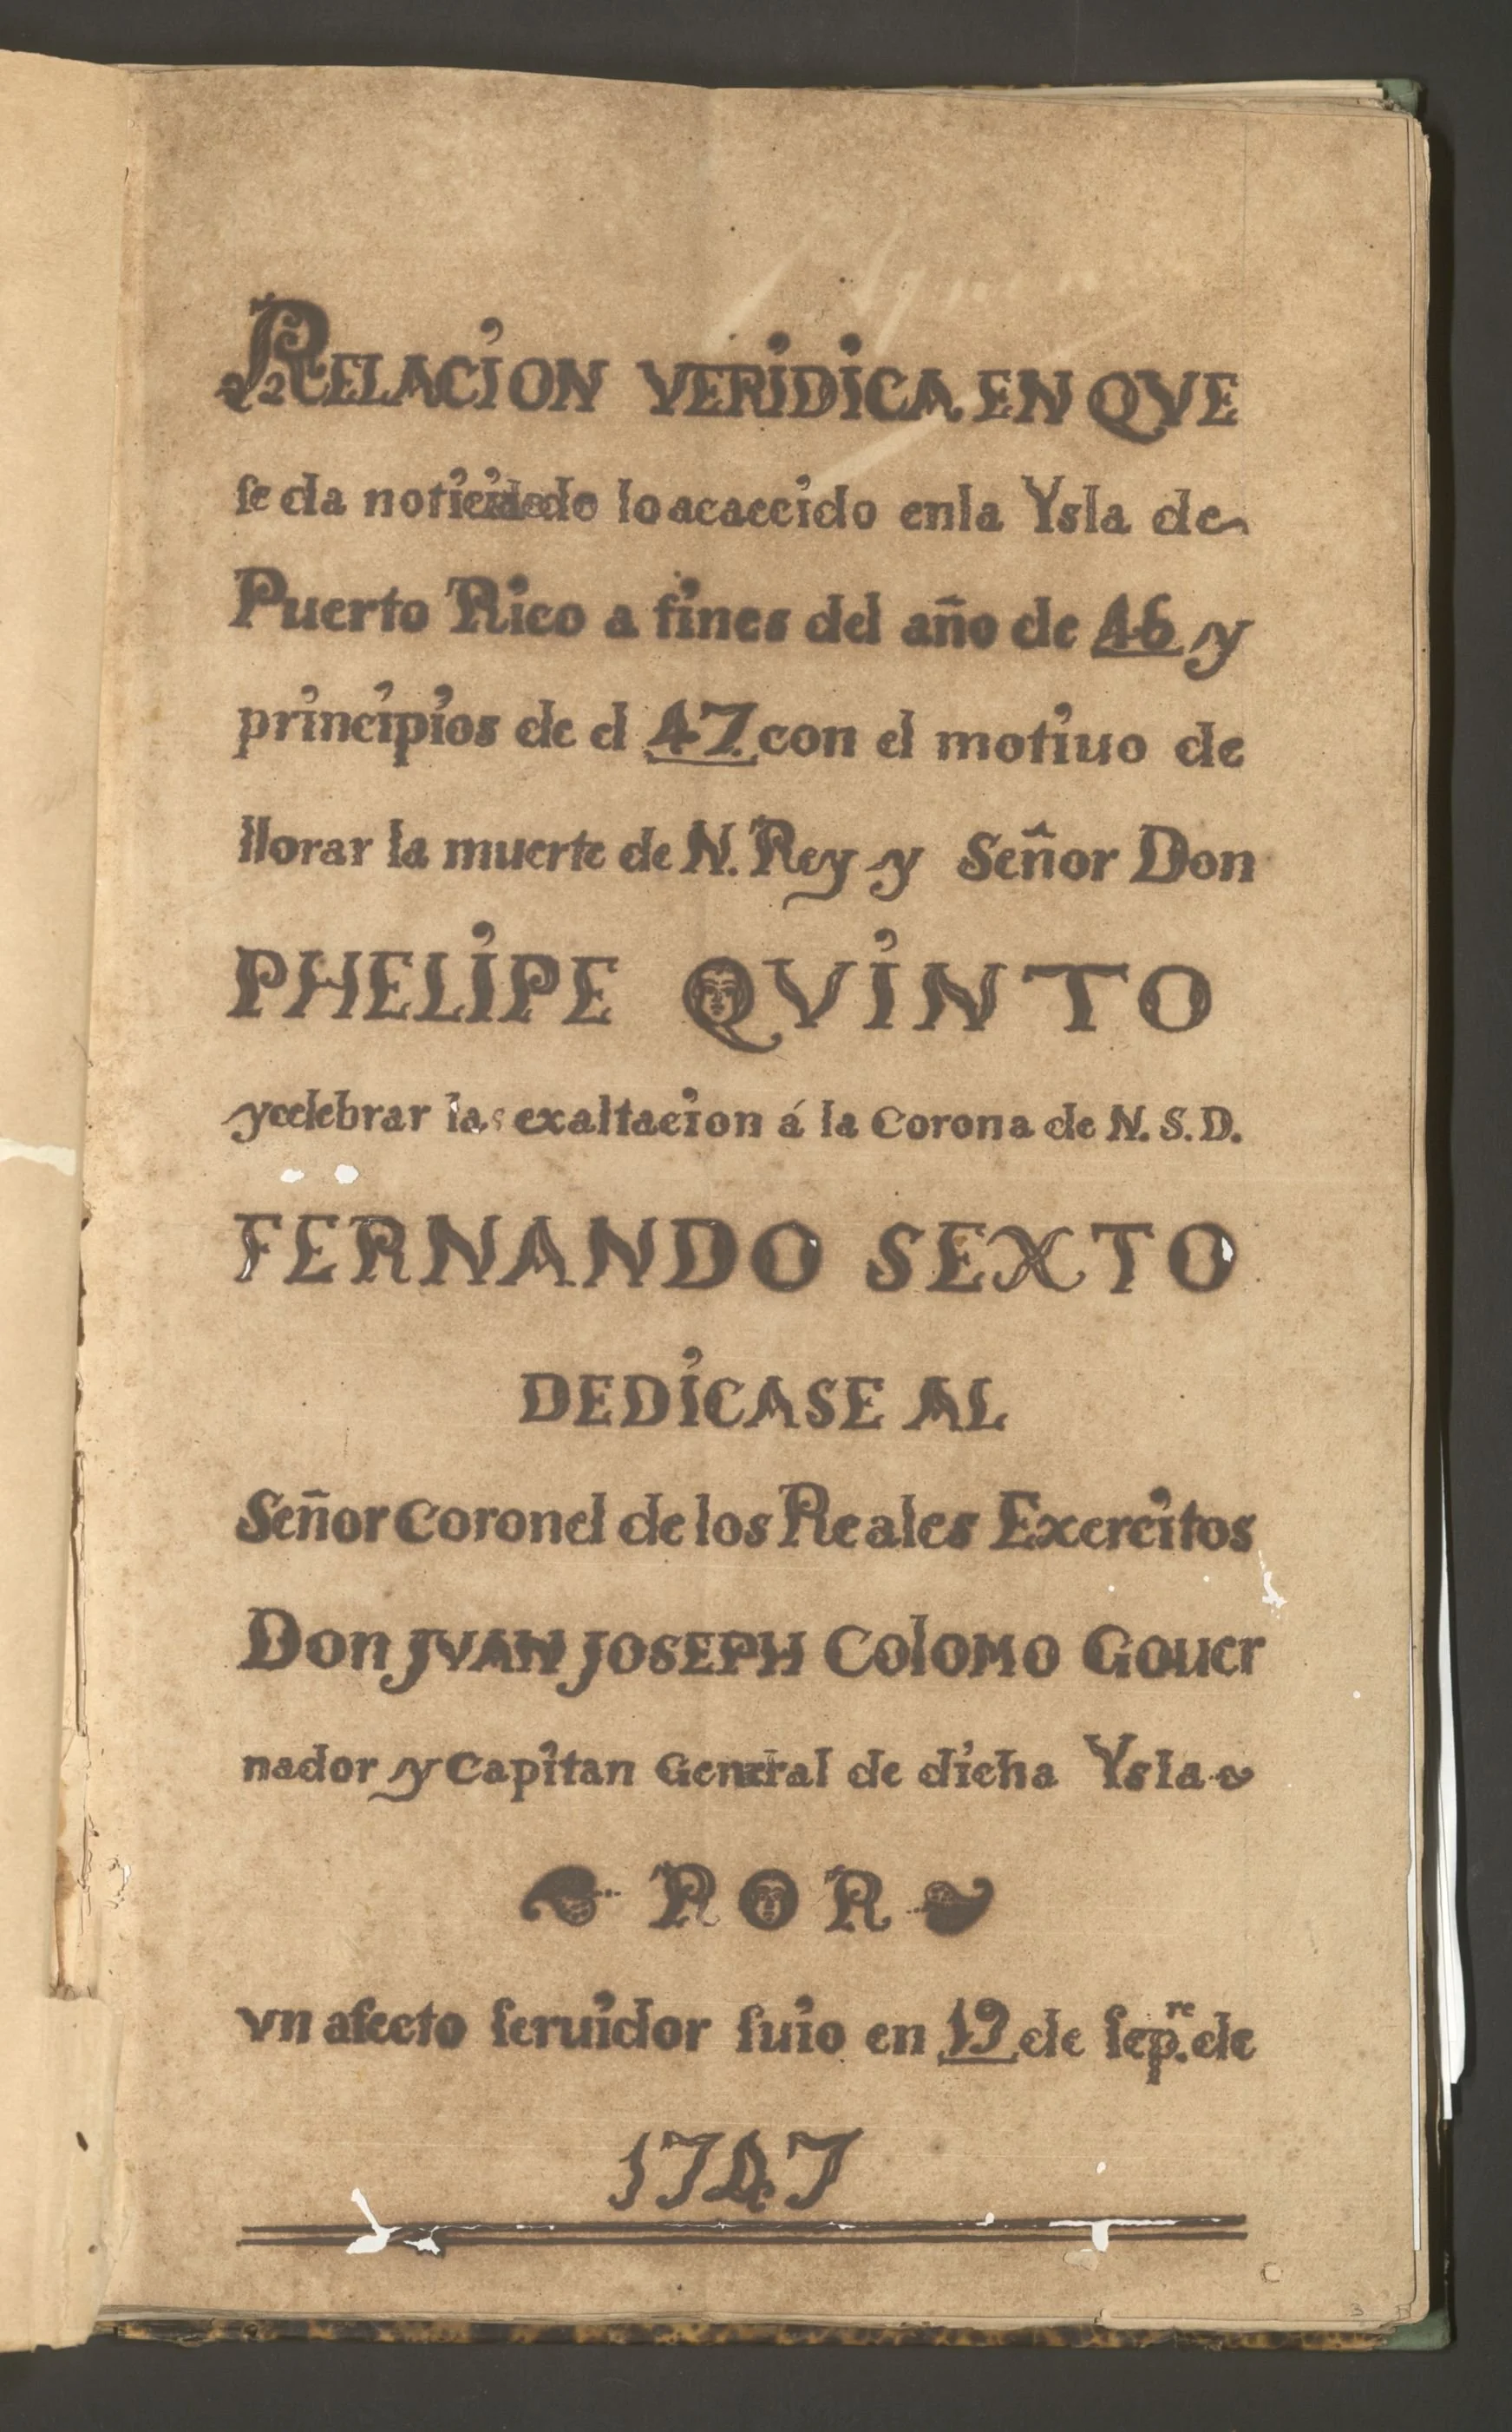 RELACION VERIDICA EN QVE
se da noticia de lo acaecido en la Ysla de
Puerto Rico a fines del año de 46 y
principios de el 47 con el motiuo de
llorar la muerte de N. Rey y Señor Don
PHELIPE QVINTO
y celebrar la exaltacion á la Corona de N. S. D.
FERNANDO SEXTO
DEDICASE AL
Señor Coronel de los Reales Exercitos
Don JVAN JOSEPH COlOMO Gouer
nador y Capitan General de dicha Ysla
POR
vn afecto seruidor suio en 19 de sepre. de
1747